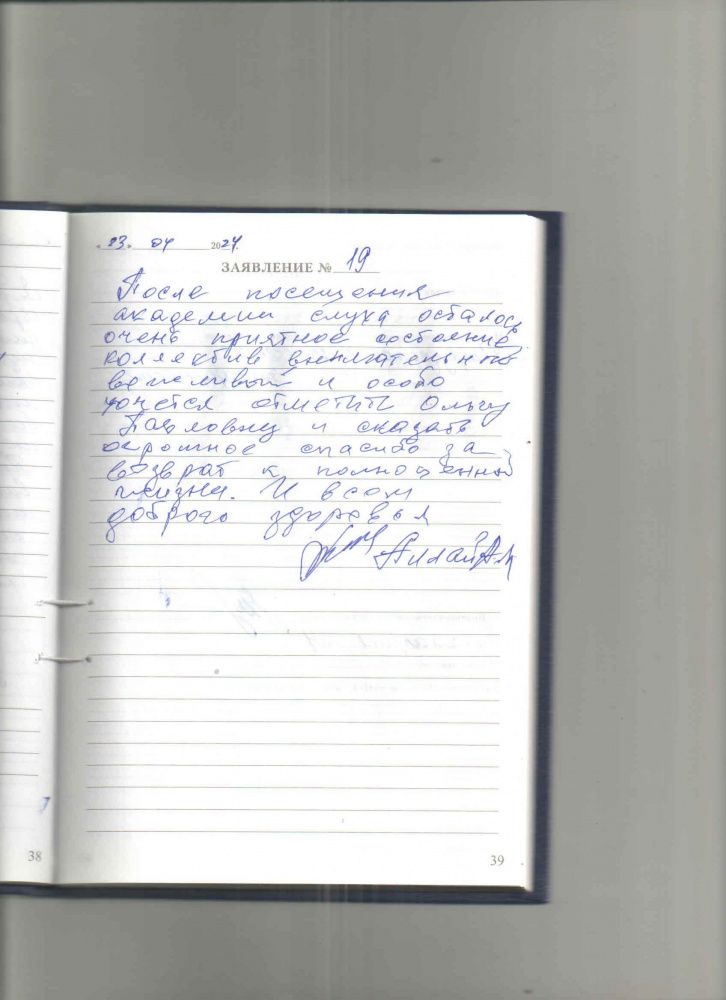 « 23 » 04 2024
ЗАЯВЛЕНИЕ № 19
После посещения
академии слуха осталось
очень приятное состояние,
коллектив внимательный
вежливый и особо
хочется отметить Ольгу
Павловну и сказать
огромное спасибо за
возврат к полноценной
жизни. И всем
доброго здоровья
38
39